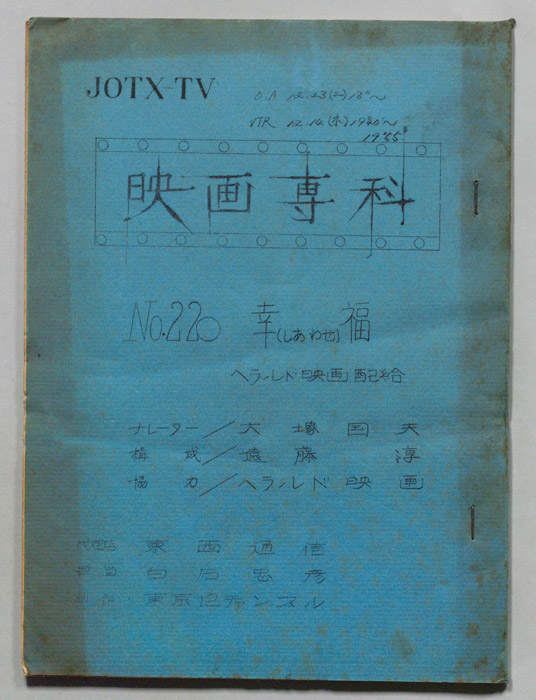 JOTX-TV
O.A 12.23(土)13°°〜
VTR 12.14(木)19²⁰〜
19'55"
映画専科
No.220 幸(しあわせ)福
ヘラルド映画配給
ナレーター/大塚国夫
構成/遠藤淳
協力/ヘラルド映画
東西通信
白石宏彦
東京12チャンネル